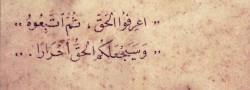 " اعرفوا الحق ، ثم اتبعوه "
" وسيجعلكم الحق أحرارا . "